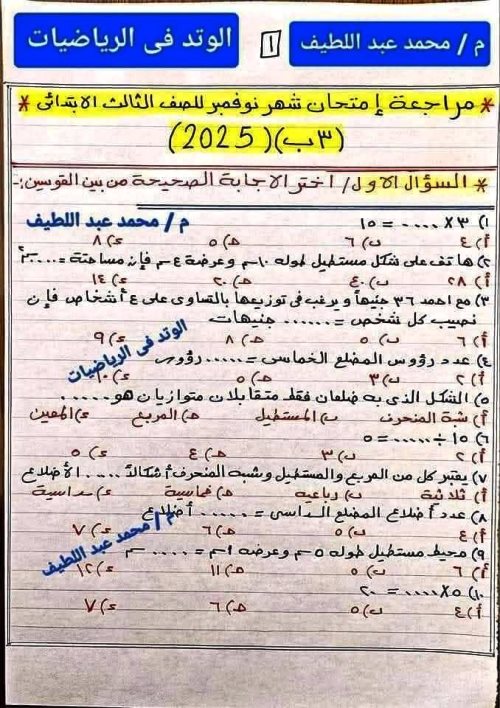 م / محمد عبد اللطيف
١
الوتد فى الرياضيات
* مراجعة إمتحان شهر نوفمبر للصف الثالث الابتدائى *
(٣ب)(2025)
* السؤال الاول/ اختر الاجابة الصحيحة من بين القوسين:-
م / محمد عبد اللطيف
١) ٣ × ..... = ١٥
أ) ٤ ب) ٦ هـ) ٥ ء) ٨
٢) هاتف على شكل مستطيل طوله ١٠سم وعرضه ٤سم فإن مساحته = ..... سم٢
أ) ٢٨ ب) ٤٠ هـ) ٢٠ ء) ١٤
٣) مع احمد ٣٦ جنيهاً ويرغب فى توزيعها بالتساوى على ٤ أشخاص فإن
نصيب كل شخص = ...... جنيهات
أ) ٦ ب) ٥ هـ) ٨ ء) ٩
الوتد فى الرياضيات
٤) عدد رؤوس المضلع الخماسى = ...... رؤوس
أ) ٢ ب) ٣ هـ) ٥ ء) ١٠
٥) الشكل الذى به ضلعان فقط متقابلان متوازيان هو......
أ) شبة المنحرف ب) المستطيل هـ) المربع ء) المعين
٦) ١٥ ÷ ...... = ٥
أ) ٢ ب) ٣ هـ) ٤ ء) ٥
٧) يعتبر كل من المربع والمستطيل وشبه المنحرف أشكالاً ..... الأضلاع
أ) ثلاثية ب) رباعية هـ) خماسية ء) سداسية
٨) عدد أضلاع المضلع السداسى = ...... أضلاع
أ) ٤ ب) ٥ هـ) ٦ ء) ٧
م / محمد عبد اللطيف
٩) محيط مستطيل طوله ٥سم وعرضه ١سم = ..... سم
أ) ٦ ب) ٥ هـ) ١١ ء) ١٢
١٠) ٥ × ..... = ٢٠
أ) ٤ ب) ٥ هـ) ٦ ء) ٧